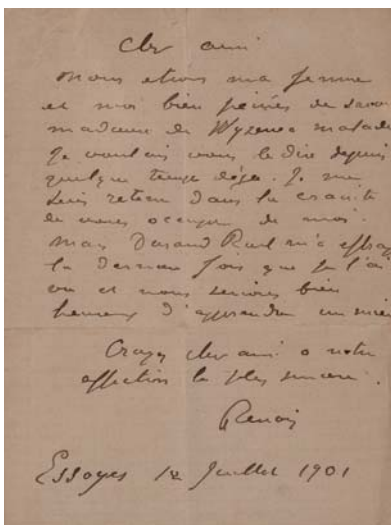 cher ami
nous etions ma femme
et moi bien peinés de savoir
madame de Wyzewa malade
Je voulais vous le dire depuis
quelque temps déja. Je me
suis retenu dans la crainte
de vous occuper de moi.
mais Durand Ruel m'a effrayé
la derniere fois que je l'ai
vu et nous serions bien
heureux d'apprendre un mieux
Croyez cher ami a notre
affection la plus sincere.
Renoir
Essoyes 12 Juillet 1901